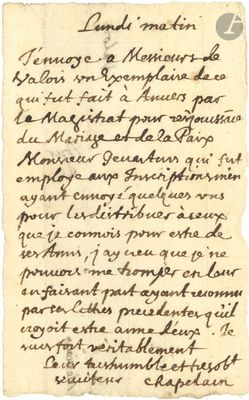 Lundi matin
J'envoye a Messieurs de
Valois un Exemplaire de ce
qui fut fait à Anvers par
le Magistrat pour resjouissance
du Mariage et de la Paix
Monsieur Gevartius qui fut
employé aux Inscriptions m'en
ayant envoyé quelques uns
pour les distribuer à ceux
que je connois pour estre de
ses Amis, j'ay creu que je ne
pouvois me tromper en leur
en faisant part ayant reconnu
par ces lettres precedentes qu'il
croyoit estre aimé d'eux. Je
suis fort veritablement
Leur tres humble et tres obt
serviteur Chapelain